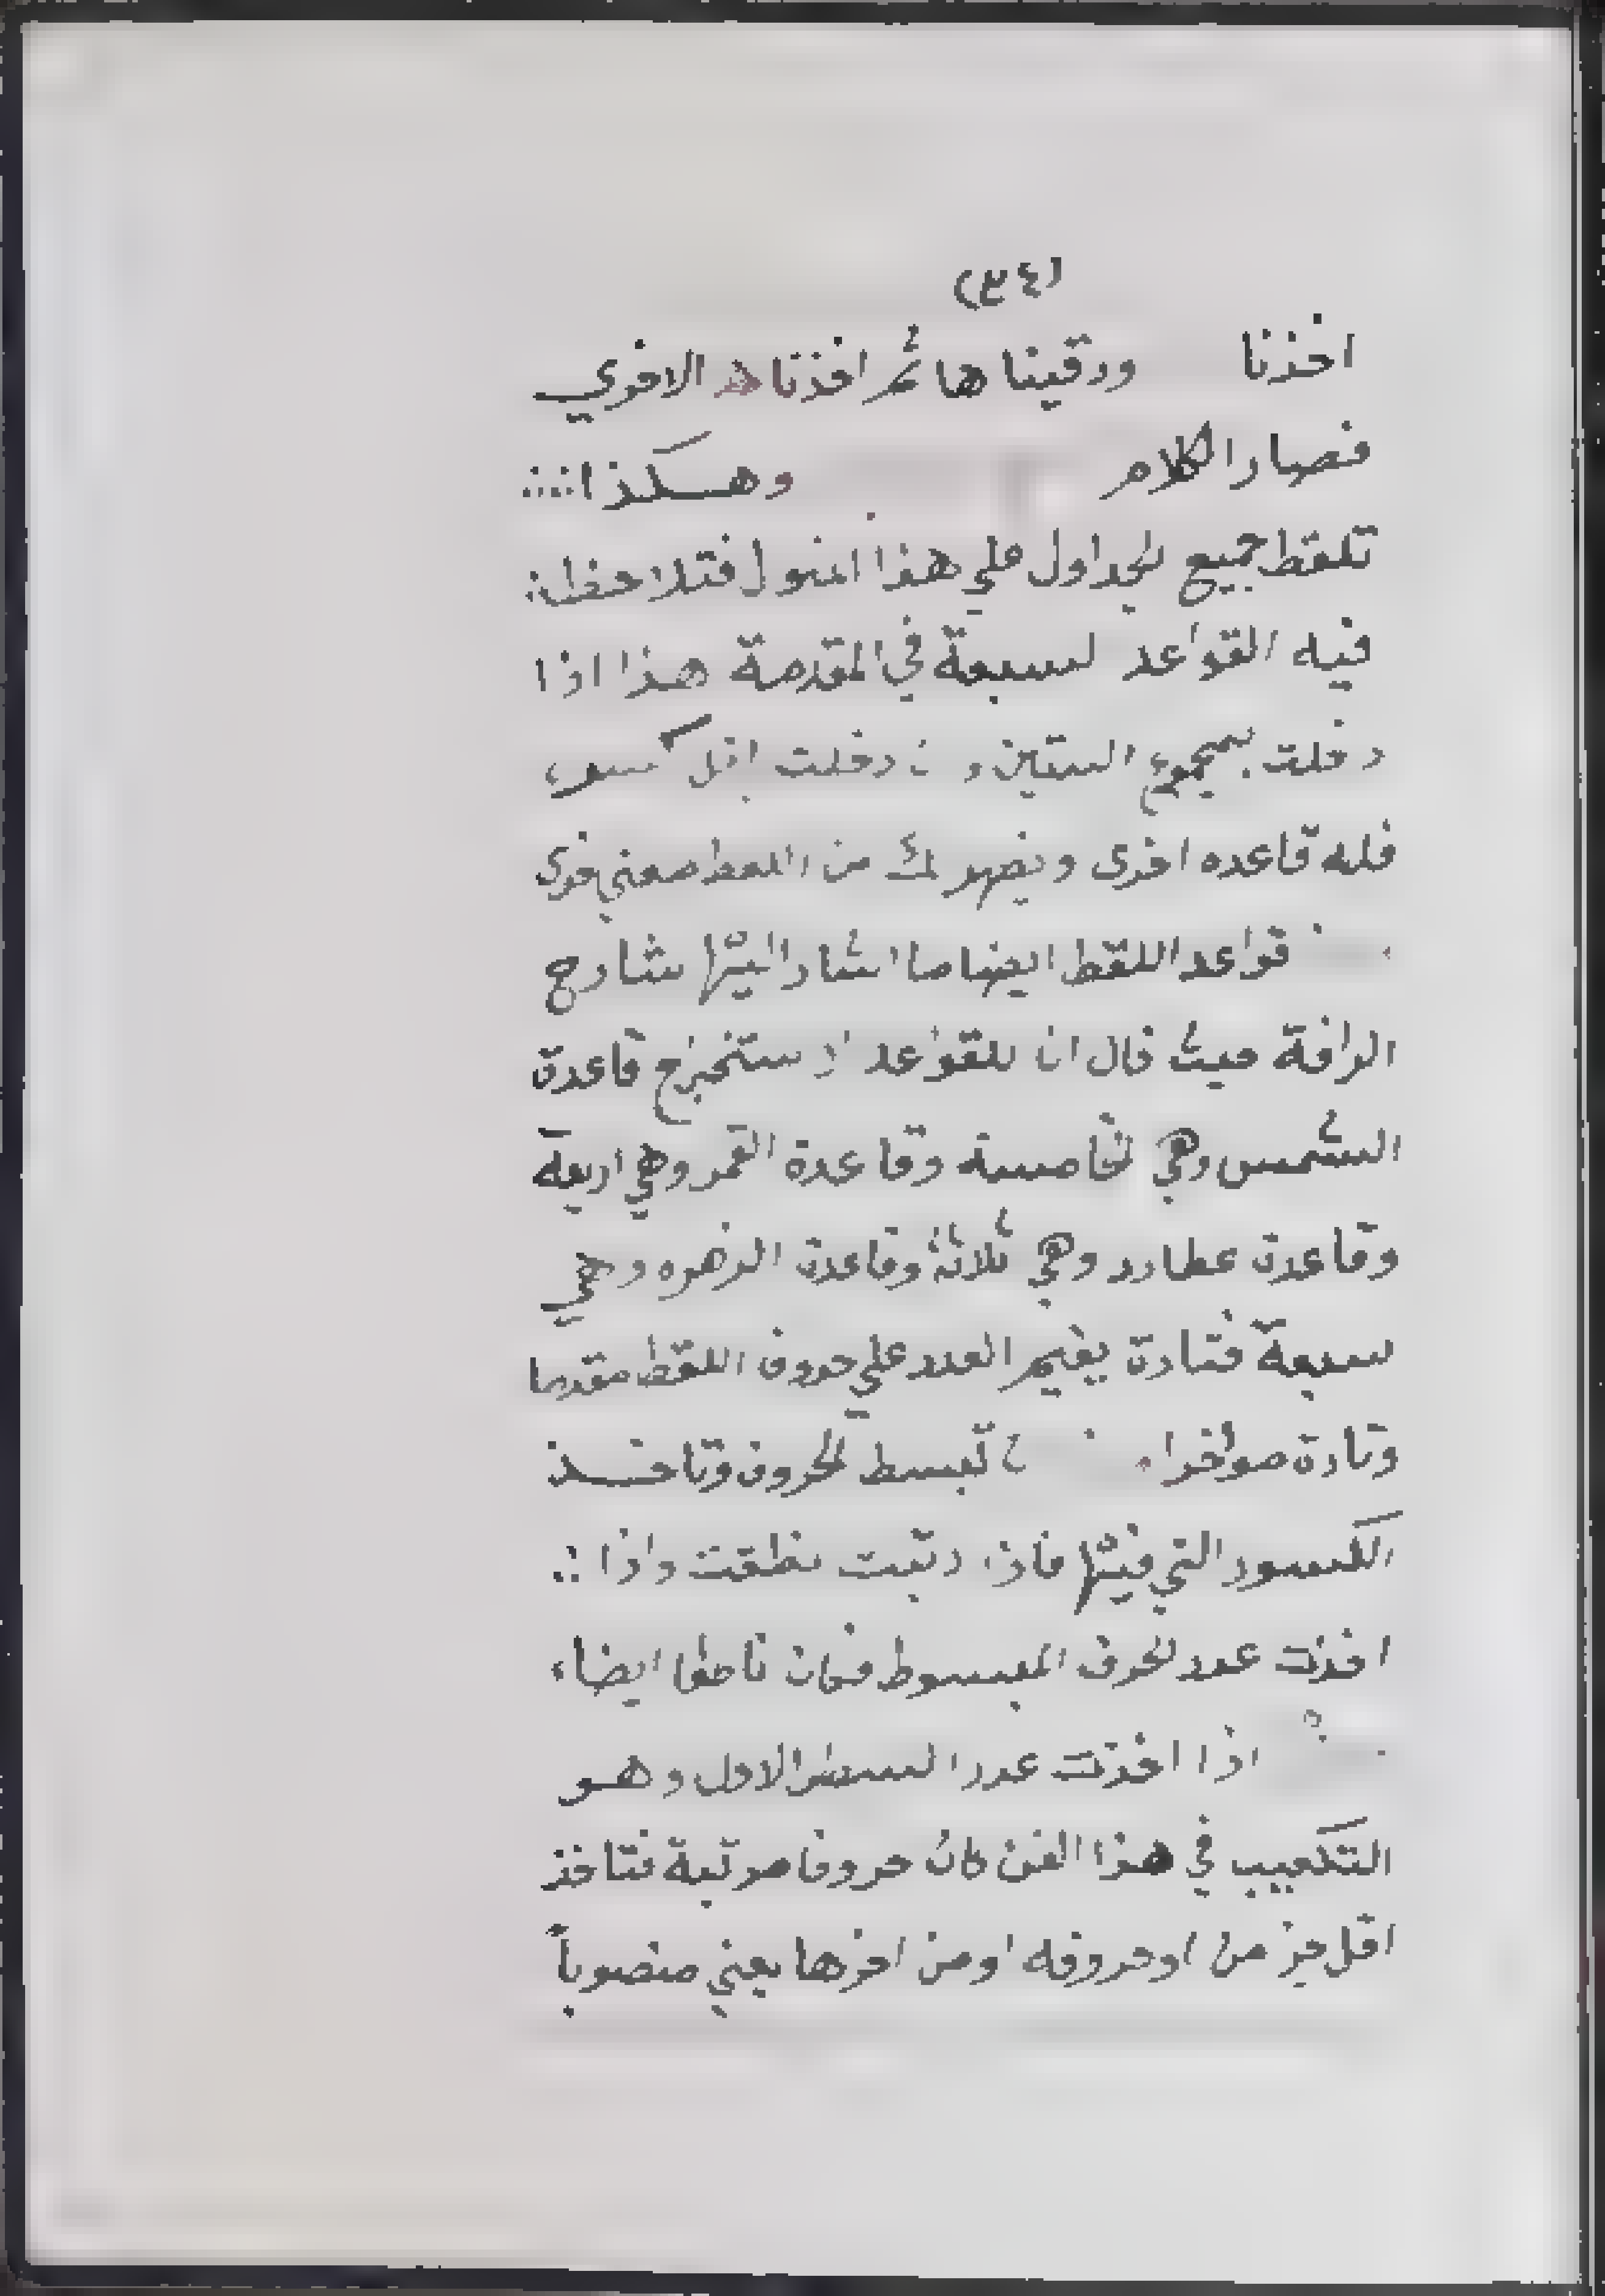 (٣٤)
اخذنا ورقيناها ثم اخذنا هـ الاخري
فصار الكلام وهكذا
تلقط جميع الجداول علي هذا المنول فتلاحظ
فيه القواعد السبعة في المقدمة هذا اذا
دخلت بمجموع الستين دخلت اقل
فله قاعده اخرى ويظهر لك من اللقط معني اخرى
قواعد اللقط ايضا ما اشار اليها شارح
الرافة حيث قال ان للقواعد استخرج قاعدة
الشمس وهي الخامسة وقاعدة القمر وهي اربعة
وقاعدة عطارد وهي ثلاثة وقاعدة الزهره وهي
سبعة فتارة يقيم العدد علي حروف اللقط مقدما
وتارة مواخرا تبسط الحروف وتاخذ
الكسور التي فيها فاذا رتبت نطقت واذا
اخذت عدد الحرف المبسوط فكان ناطقا ايضا
اذا اخذت عدد السطر الاول وهو
التكعيب في هذا الفن كان حروفا مرتبة فتاخذ
اقل جز من او حروفه او من اخرها يعني منصوباً